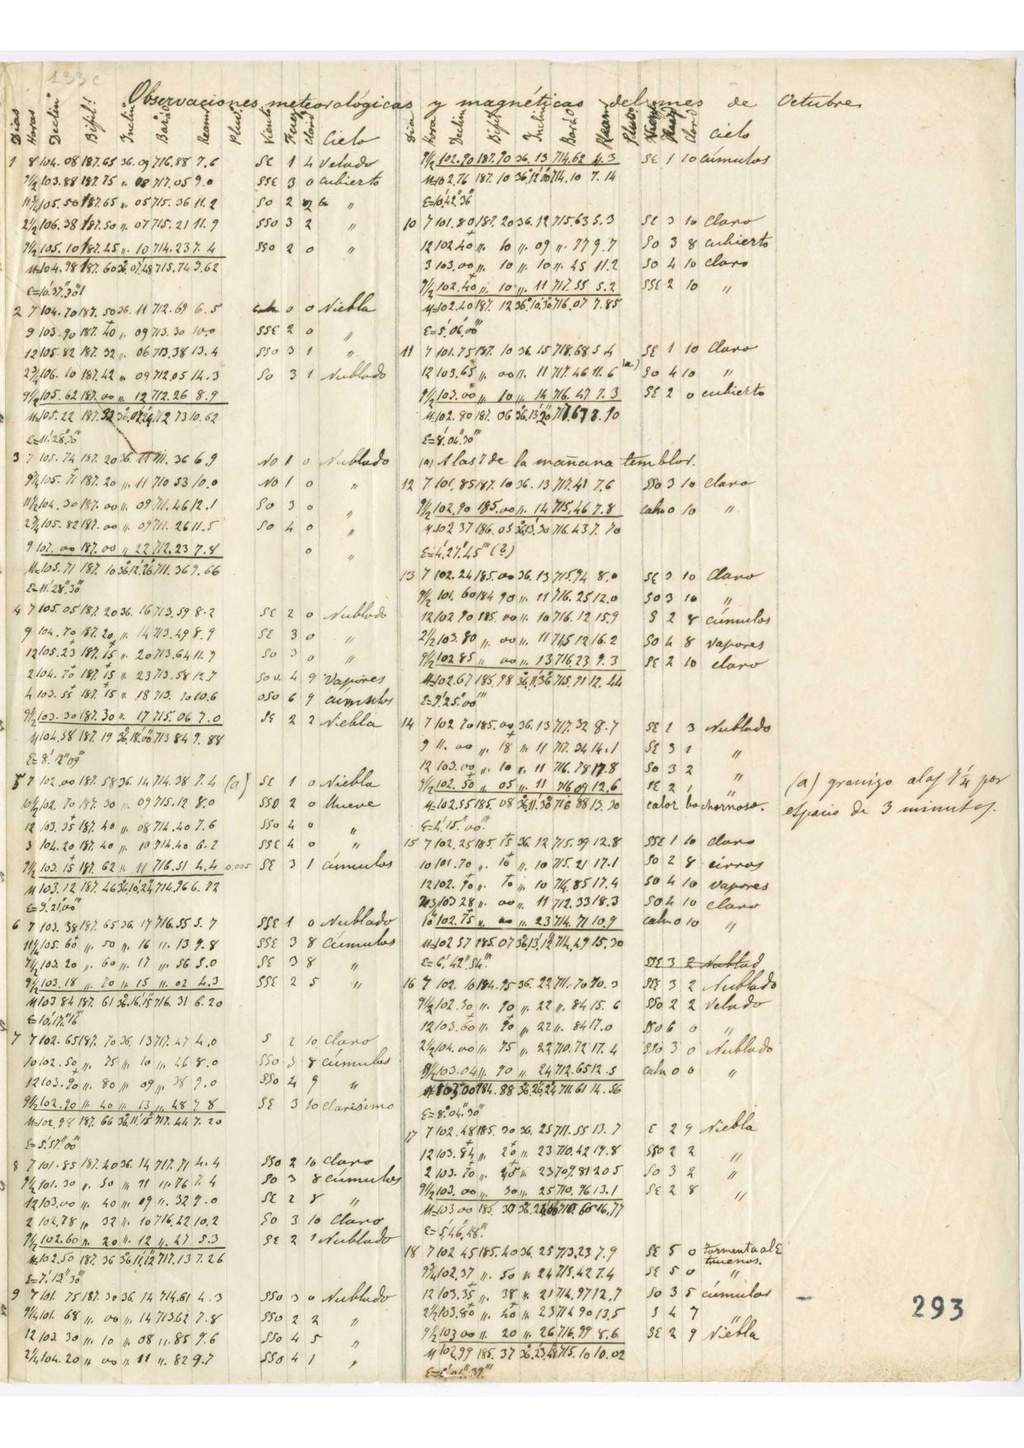 133c
Observaciones meteorológicas y magnéticas del mes de Octubre
Dias Horas Declin. Bifil. Inclin. Baró Reaum. Pluv. Viento Fuerz. Clard. Cielo
1 8 104.08 187.65 36.09 716.88 7.6 SE 1 4 Velado
9½ 103.88 187.75 „ 08 717.05 9.0 SSE 3 0 cubierto
105.50 187.65 „ 05 715.36 11.2 SO 2 „
2½ 106.38 187.50 „ 07 715.21 11.9 SSO 3 2 „
9½ 105.10 187.45 „ 10 714.23 7.4 SSO 2 0 „
M=104.98 187.60 715.74 9.62
2 7 104.70 187.50 36.11 712.69 6.5 0 0 Niebla
9 103.90 187.40 „ 09 713.30 10.0 SSE 2 0 „
12 105.82 187.32 „ 06 713.38 13.4 SSO 3 1 „
106.10 187.42 „ 09 712.05 14.3 SO 3 1 Nublado
9½ 105.62 187.00 „ 12 712.26 8.9
M=105.22 187.32 10.62
3 7 105.74 187.20 36 711.36 6.9 NO 1 0 Nublado
187.20 „ 11 710 53 10.0 NO 1 0 „
104.30 187.00 „ 09 711.46 12.1 SO 3 0 „
105.82 187.00 „ 09 711.26 11.5 SO 4 0 „
9 107.00 187.00 „ 22 712.23 7.8 0 „
M=105.71 187.10 711.36 9.66
E=11.28.30
4 7 105.05 187.20 36.16 713.59 8.2 SE 2 0 Nublado
9 104.70 187.20 „ 14 713.49 8.9 SE 3 0 „
12 105.23 187.15 „ 20 713.64 11.9 SO 3 0 „
2 104.70 187.15 „ 23 713.58 12.7 4 9 Vapores
4 103.50 187.15 „ 18 713.70 10.6 OSO 6 9 cúmulos
9½ 103.30 187.30 „ 17 715.06 7.0 SE 2 2 Niebla
M 104.58 187.19 713 84 9.88
E=8.12.09
5 7 102.00 187.58 36.14 714.38 7.4 (a) SE 1 0 Niebla
10½ 102.70 187.30 „ 09 715.12 8.0 SSO 2 0 Llueve
12 103.35 187.40 „ 08 714.40 7.6 SSO 4 0 „
3 104.20 187.40 „ 10 714.40 6.2 SSE 4 0 „
9½ 103.15 187.62 „ 11 716.51 4.4 0,005 SE 3 1 cúmulos
M 103.12 187.46 714.96 6.72
E=9.21.00
6 7 103.38 187.65 36.17 716.55 5.7 SSE 1 0 Nublado
105.60 „ 50 „ 16 „ 13 9.8 SSE 3 8 Cúmulos
103.20 „ 60 „ 17 „ 56 5.0 SE 3 8 „
9½ 103.18 „ 70 „ 15 „ 02 4.3 SSE 2 5 „
M 103 84 187.61 716.31 6.20
E=10.17.16
7 7 102.65 187.70 36.13 717.47 4.0 S 2 10 Claro
10 102.50 „ 75 „ 10 „ 26 8.0 SSO 3 8 cúmulos
12 103.90 „ 80 „ 09 „ 38 9.0 SSO 4 9 „
9½ 102.90 „ 40 „ 13 „ 48 7 8 SE 3 10 clarísimo
M=102.98 187.66 717.44 7.20
E=5.57.00
8 7 101.85 187.40 36.14 717.71 4.4 SSO 2 10 Claro
9½ 101.30 „ 50 „ 11 „ 76 7.4 SO 3 8 cúmulos
12 103.00 „ 40 „ 09 „ 32 9.0 SE 2 8 „
2 102.78 „ 32 „ 10 716.22 10.2 SO 3 10 Claro
9½ 102.60 „ 20 „ 12 „ 47 5.3 SE 2 1 Nublado
M=102.50 187.36 717.13 7.26
E=7.13.30
9 7 101.75 187.30 36.14 714.61 4.3 SSO 3 0 Nublado
9¼ 101.68 „ 00 „ 14 713.62 7.8 SSO 2 2 „
12 103.30 „ 10 „ 08 „ 85 9.6 SSO 4 5 „
2¼ 104.20 „ 00 „ 11 „ 82 9.7 SSO 4 1 „
Dia Hora Declin. Bifil. Inclin. Baró Reaum. Pluv. Viento Fuerz. Clard. Cielo
9½ 102.70 187.70 36.13 714.62 4.3 SE 1 10 cúmulos
M=102.76 187.10 714.10 7.14
E=10.42.36
10 7 101.80 187.20 36.12 715.63 5.3 SE 3 10 Claro
12 102.40 „ 10 „ 09 „ 77 9.7 SO 3 8 cubierto
3 103.00 „ 10 „ 10 „ 45 11.2 SO 4 10 claro
9½ 102.40 „ 10 „ 11 717.55 5.2 SSE 2 10 „
M=102.40 187.12 716.07 7.85
E=5.06.00
11 7 101.75 187.10 36.15 718.68 5.4 SE 1 10 Claro
12 103.65 „ 00 „ 11 717.46 11.6 (a) SO 4 10 „
9½ 103.00 „ 10 „ 14 716.47 7.3 SE 2 0 cubierto
M=102.80 187.06 8.10
E=8.04.30
(a) A las 7 de la mañana temblor.
12 7 101.85 187.10 36.13 717.41 7.6 SSO 3 10 claro
9½ 102.90 185.00 „ 14 715.46 7.8 calma 0 10 „
M=102 37 186.05 716.43 7.70
E=4.27.45 (?)
13 7 102.24 185.00 36.13 715.94 8.0 SE 3 10 Claro
9½ 101.60 184 90 „ 11 716.25 12.0 SO 3 10 „
12 102.90 185.00 „ 10 716.12 15.9 S 2 8 cúmulos
2½ 103.80 „ 00 „ 11 715 12 16.2 SO 4 8 vapores
9½ 102 85 „ 00 „ 13 716.23 9.3 SE 2 10 claro
M=102.67 185.98 715.91 12.44
E=9.25.00
14 7 102 70 185.00 36.13 717.32 8.7 SE 1 3 Nublado
9 „ 00 „ 18 „ 11 717.34 14.1 SE 3 1 „
12 103.00 „ 10 „ 11 716.78 17.8 SO 3 2 „
9½ 102.50 „ 05 „ 11 716.09 12.6 SE 2 1 „
M=102.55 185.08 716 88 13.30 calor bochornoso.
E=4.15.00
15 7 102.25 185.15 36.12 715.39 12.8 SSE 1 10 claro
10 101.70 „ 10 „ 10 715.21 17.1 SO 2 8 cirros
12 102.90 „ 10 714.85 17.4 SO 4 10 vapores
103 28 „ 00 „ 11 712.33 18.3 SO 4 10 claro
102.75 „ 00 „ 23 714.71 10.9 calma 0 10 „
M=102 57 185.07 714.49 15.30
E=6.42.54
16 7 102.10 184.95 36.22 711.70 3 2 Nublado
9½ 102.30 „ 90 „ 22 „ 84 15.6 SSO 2 2 Velado
12 103.60 „ 90 „ 22 „ 84 17.0 SSO 6 0 „
2½ 104.00 „ 75 „ 22 710.72 17.4 SSO 3 0 Nublado
103.04 „ 90 „ 24 712.65 12.5 calma 0 0 „
103.00 184.88 711.61 14.56
E=8.04.30
17 7 102.48 185.30 36.25 711.55 13.7 E 2 9 Niebla
12 103.84 „ 20 „ 23 710.42 19.8 SSO 2 2 „
2 103.70 „ „ 23 709.81 20.5 SO 3 2 „
9½ 103.00 „ 30 „ 25 710.76 13.1 SE 2 8 „
M=103.00 185.30 16.77
E=5.46.48
18 7 102 45 185.40 36.25 713.23 7.9 SE 5 0 tormenta al E
truenos.
102.37 „ 50 „ 24 715.42 7.4 SE 5 0 „
12 103.35 „ 38 „ 21 714.97 12.7 SO 3 5 cúmulos
2½ 103.80 „ 40 „ 23 714 90 13.5 S 4 7 „
9½ 103 00 „ 20 „ 26 716.99 8.6 SE 2 9 Niebla
M 102.99 185.37 715.10 10.02
(a) granizo a las 7¼ por
espacio de 3 minutos.
293